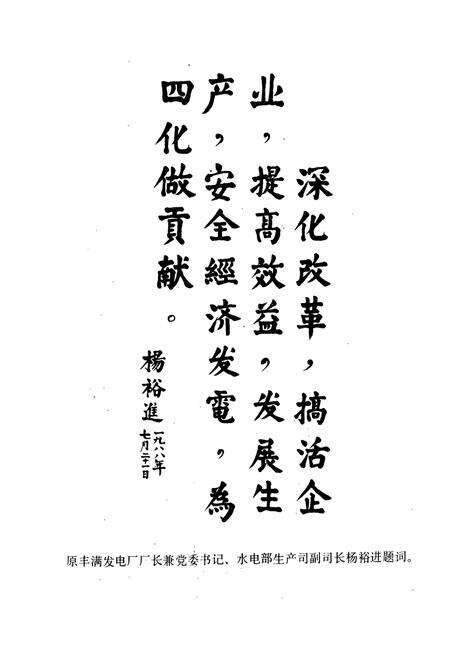 深化改革，搞活企
业，提高效益，发展生
产，安全經济发電，為
四化做貢献。
楊裕進
一九八八年
七月二十一日
原丰满发电厂厂长兼党委书记、水电部生产司副司长杨裕进题词。